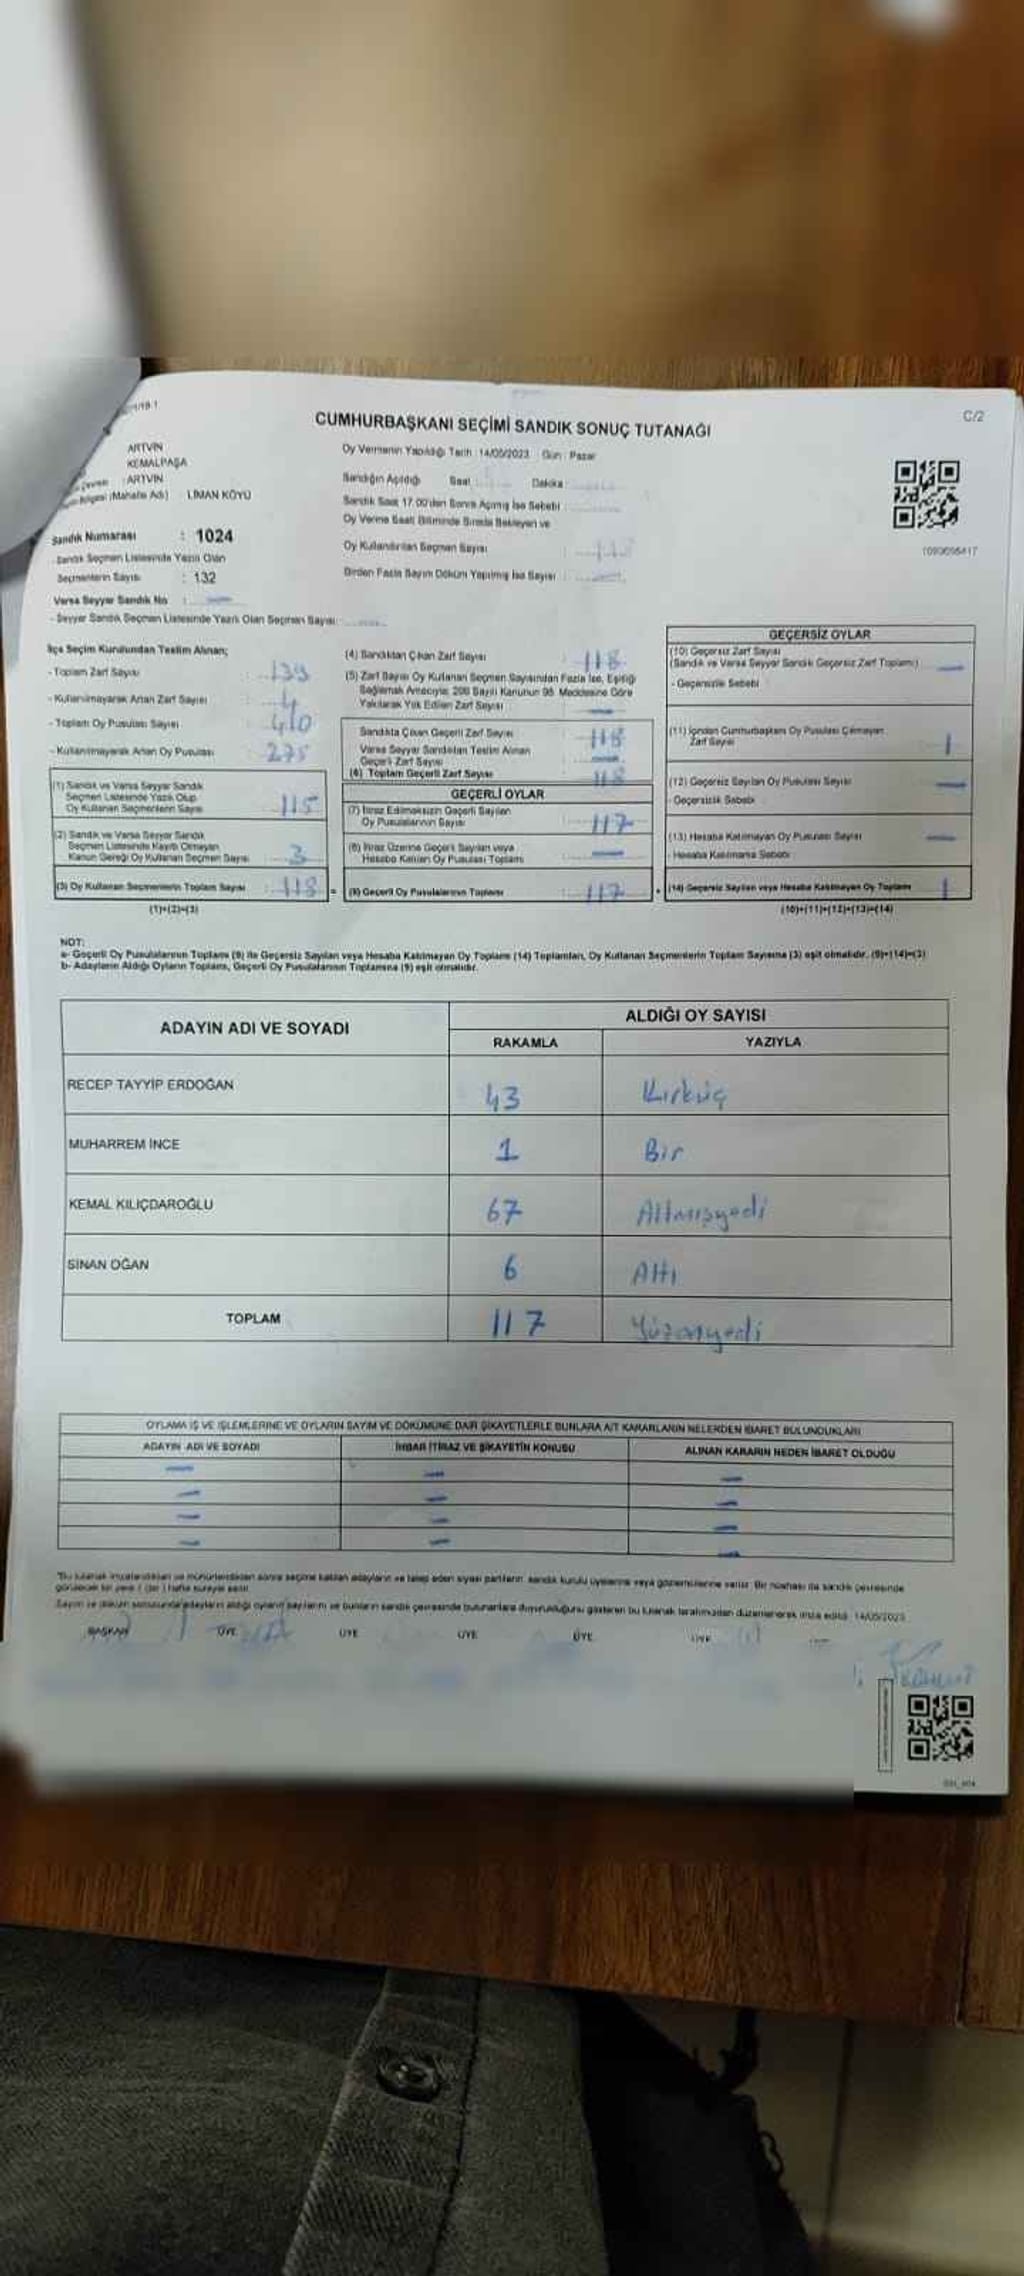 C/2
CUMHURBAŞKANI SEÇİMİ SANDIK SONUÇ TUTANAĞI
ARTVİN
KEMALPAŞA
: ARTVİN
(Mahalle Adı) LİMAN KÖYÜ
Oy Vermenin Yapıldığı Tarih : 14/05/2023 Gün : Pazar
Sandığın Açıldığı Saat : Dakika :
Sandık Saat 17.00'den Sonra Açılmış İse Sebebi :
Oy Verme Saati Bitiminde Sırada Bekleyen ve
Oy Kullandırılan Seçmen Sayısı :
Birden Fazla Sayım Döküm Yapılmış İse Sayısı : —
Sandık Numarası : 1024
- Sandık Seçmen Listesinde Yazılı Olan
Seçmenlerin Sayısı : 132
Varsa Seyyar Sandık No : —
- Seyyar Sandık Seçmen Listesinde Yazılı Olan Seçmen Sayısı: —
İlçe Seçim Kurulundan Teslim Alınan;
- Toplam Zarf Sayısı : 139
- Kullanılmayarak Artan Zarf Sayısı : 4
- Toplam Oy Pusulası Sayısı : 410
- Kullanılmayarak Artan Oy Pusulası : 275
(1) Sandık ve Varsa Seyyar Sandık
Seçmen Listesinde Yazılı Olup
Oy Kullanan Seçmenlerin Sayısı : 115
(2) Sandık ve Varsa Seyyar Sandık
Seçmen Listesinde Kayıtlı Olmayan
Kanun Gereği Oy Kullanan Seçmen Sayısı : 3
(3) Oy Kullanan Seçmenlerin Toplam Sayısı : 118
(1)+(2)=(3)
(4) Sandıktan Çıkan Zarf Sayısı : 118
(5) Zarf Sayısı Oy Kullanan Seçmen Sayısından Fazla İse, Eşitliği
Sağlamak Amacıyla; 298 Sayılı Kanunun 98. Maddesine Göre
Yakılarak Yok Edilen Zarf Sayısı : —
Sandıkta Çıkan Geçerli Zarf Sayısı : 118
Varsa Seyyar Sandıktan Teslim Alınan
Geçerli Zarf Sayısı : —
(6) Toplam Geçerli Zarf Sayısı : 118
GEÇERLİ OYLAR
(7) İtiraz Edilmeksizin Geçerli Sayılan
Oy Pusulalarının Sayısı : 117
(8) İtiraz Üzerine Geçerli Sayılan veya
Hesaba Katılan Oy Pusulası Toplamı : —
(9) Geçerli Oy Pusulalarının Toplamı : 117
GEÇERSİZ OYLAR
(10) Geçersiz Zarf Sayısı
(Sandık ve Varsa Seyyar Sandık Geçersiz Zarf Toplamı) : —
- Geçersizlik Sebebi
(11) İçinden Cumhurbaşkanı Oy Pusulası Çıkmayan
Zarf Sayısı : 1
(12) Geçersiz Sayılan Oy Pusulası Sayısı : —
- Geçersizlik Sebebi
(13) Hesaba Katılmayan Oy Pusulası Sayısı : —
- Hesaba Katılmama Sebebi
(14) Geçersiz Sayılan veya Hesaba Katılmayan Oy Toplamı : 1
(10)+(11)+(12)+(13)=(14)
NOT:
a- Geçerli Oy Pusulalarının Toplamı (9) ile Geçersiz Sayılan veya Hesaba Katılmayan Oy Toplamı (14) Toplamları, Oy Kullanan Seçmenlerin Toplam Sayısına (3) eşit olmalıdır. (9)+(14)=(3)
b- Adayların Aldığı Oyların Toplamı, Geçerli Oy Pusulalarının Toplamına (9) eşit olmalıdır.
ADAYIN ADI VE SOYADI ALDIĞI OY SAYISI
RAKAMLA YAZIYLA
RECEP TAYYİP ERDOĞAN 43 Kırküç
MUHARREM İNCE 1 Bir
KEMAL KILIÇDAROĞLU 67 Altmışyedi
SİNAN OĞAN 6 Altı
TOPLAM 117 Yüzonyedi
OYLAMA İŞ VE İŞLEMLERİNE VE OYLARIN SAYIM VE DÖKÜMÜNE DAİR ŞİKAYETLERLE BUNLARA AİT KARARLARIN NELERDEN İBARET BULUNDUKLARI
ADAYIN ADI VE SOYADI İHBAR İTİRAZ VE ŞİKAYETİN KONUSU ALINAN KARARIN NEDEN İBARET OLDUĞU
— — —
— — —
— — —
— — —
*Bu tutanak imzalandıktan ve mühürlendikten sonra seçime katılan adayların ve talep eden siyasi partilerin sandık kurulu üyelerine veya gözlemcilerine verilir. Bir nüshası da sandık çevresinde
görülecek bir yere 1 (bir) hafta süreyle asılır.
Sayım ve döküm sonucunda adayların aldığı oyların sayılarını ve bunların sandık çevresinde bulunanlara duyurulduğunu gösteren bu tutanak tarafımızdan düzenlenerek imza edildi. 14/05/2023
BAŞKAN ÜYE ÜYE ÜYE ÜYE ÜYE